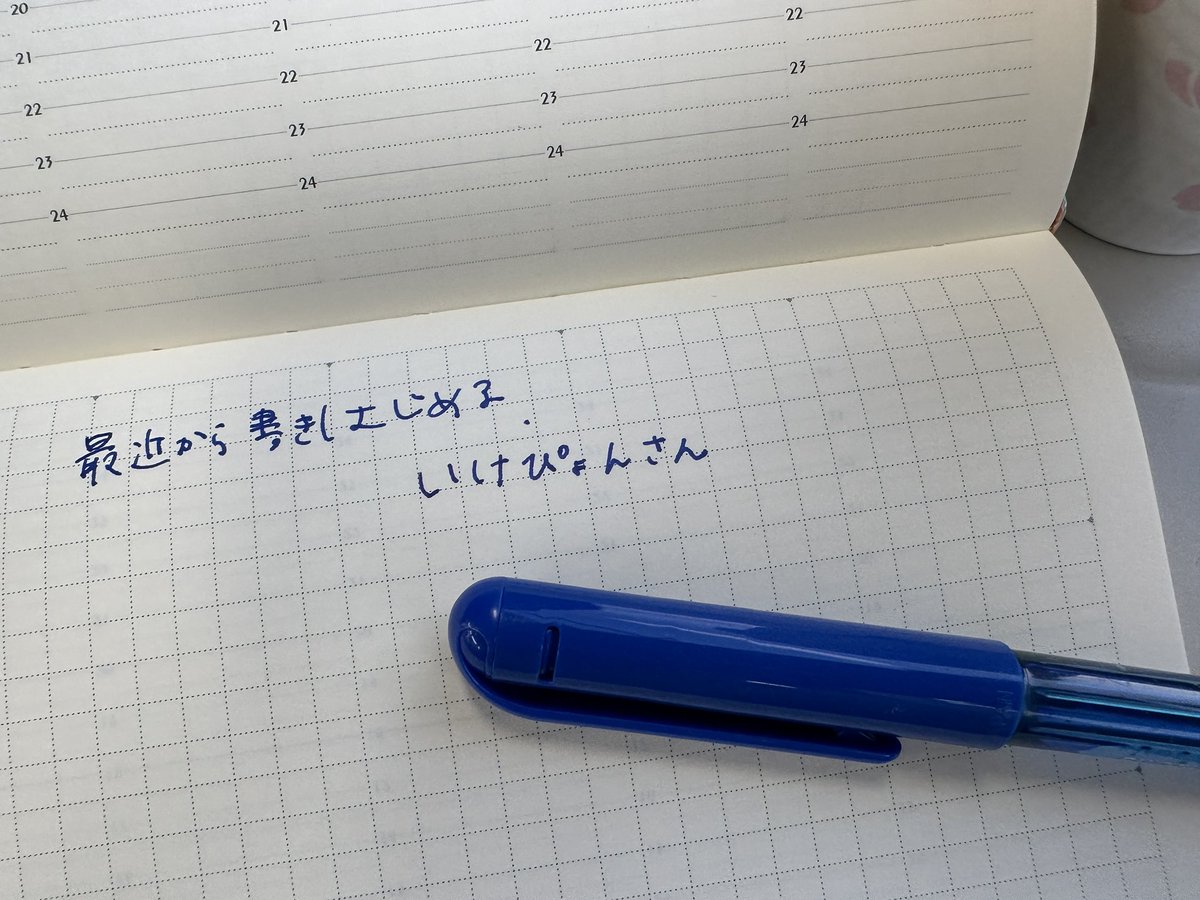 20 21 22 22
21 22 23 23
22 23 24 24
23 24
24
最近から書きはじめる
いけぴょんさん